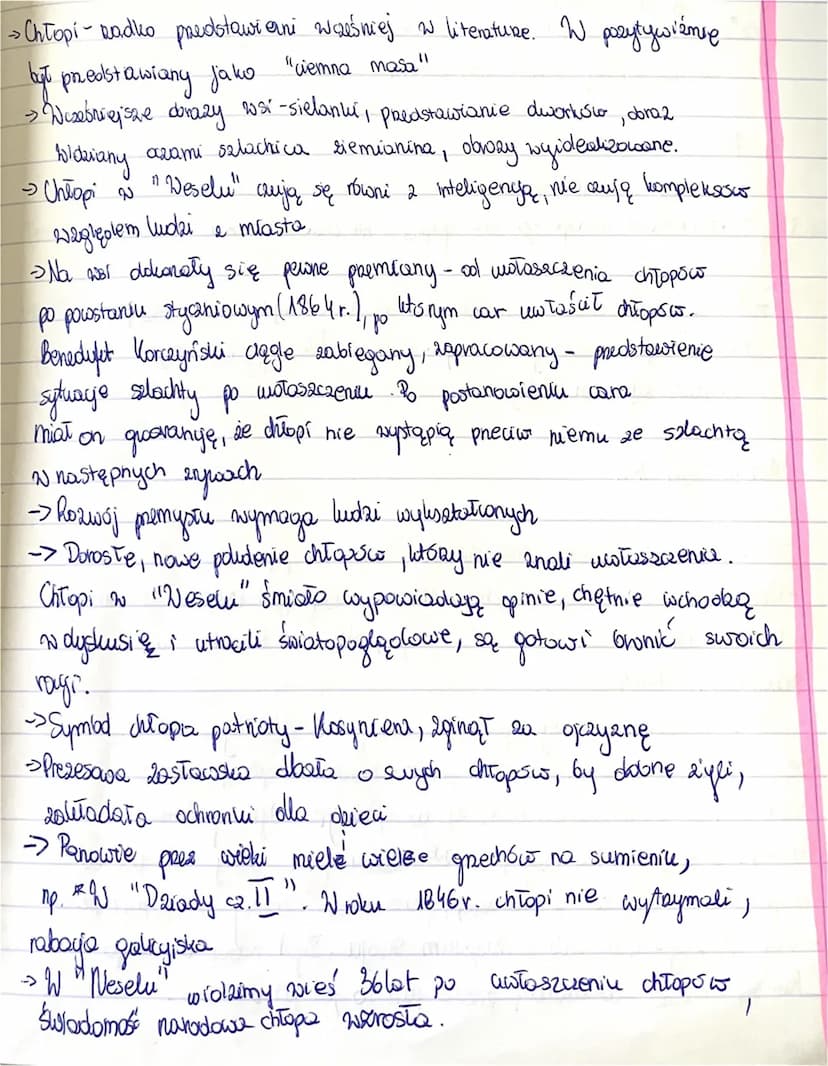 → Chłopi - rzadko przedstawiani wcześniej w literaturze. W pozytywizmie
był przedstawiany jako "ciemna masa"
→ Wcześniejsze obrazy wsi - sielanki, przedstawianie dworków, obraz
widziany oczami szlachica ziemianina, obrazy wyidealizowane.
→ Chłopi w "Weselu" czują się równi z inteligencją, nie czują kompleksów
względem ludzi z miasta
→ Na wsi dokonały się pewne przemiany - od uwłaszczenia chłopów
po powstaniu styczniowym (1864 r.), po którym car uwłaścił chłopów.
Benedykt Korczyński ciągle zabiegany, zapracowany - przedstawienie
sytuacje szlachty po uwłaszczeniu. Po postanowieniu cara
miał on gwarancję, że chłopi nie wystąpią przeciw niemu ze szlachtą
w następnych zrywach
→ Rozwój przemysłu wymaga ludzi wykształconych
→ Dorosłe, nowe pokolenie chłopów, który nie znali uwłaszczenia.
Chłopi w "Weselu" śmiało wypowiadają opinie, chętnie wchodzą
w dyskusję i światopoglądowe, są gotowi bronić swoich
racji.
→ Symbol chłopa patrioty - Kosyniera, zginął za ojczyznę
→ Prezesowa Zasławska dbała o swych chłopów, by dobrze żyli,
zakładała ochronki dla dzieci
→ Panowie przez wieki miele wielge grzechów na sumieniu,
np. *W "Dziady cz. II". W roku 1846r. chłopi nie wytrzymali,
rabacja galicyjska
→ W "Weselu" widzimy wieś 36 lat po uwłaszczeniu chłopów,
świadomość narodowa chłopa wzrosła.